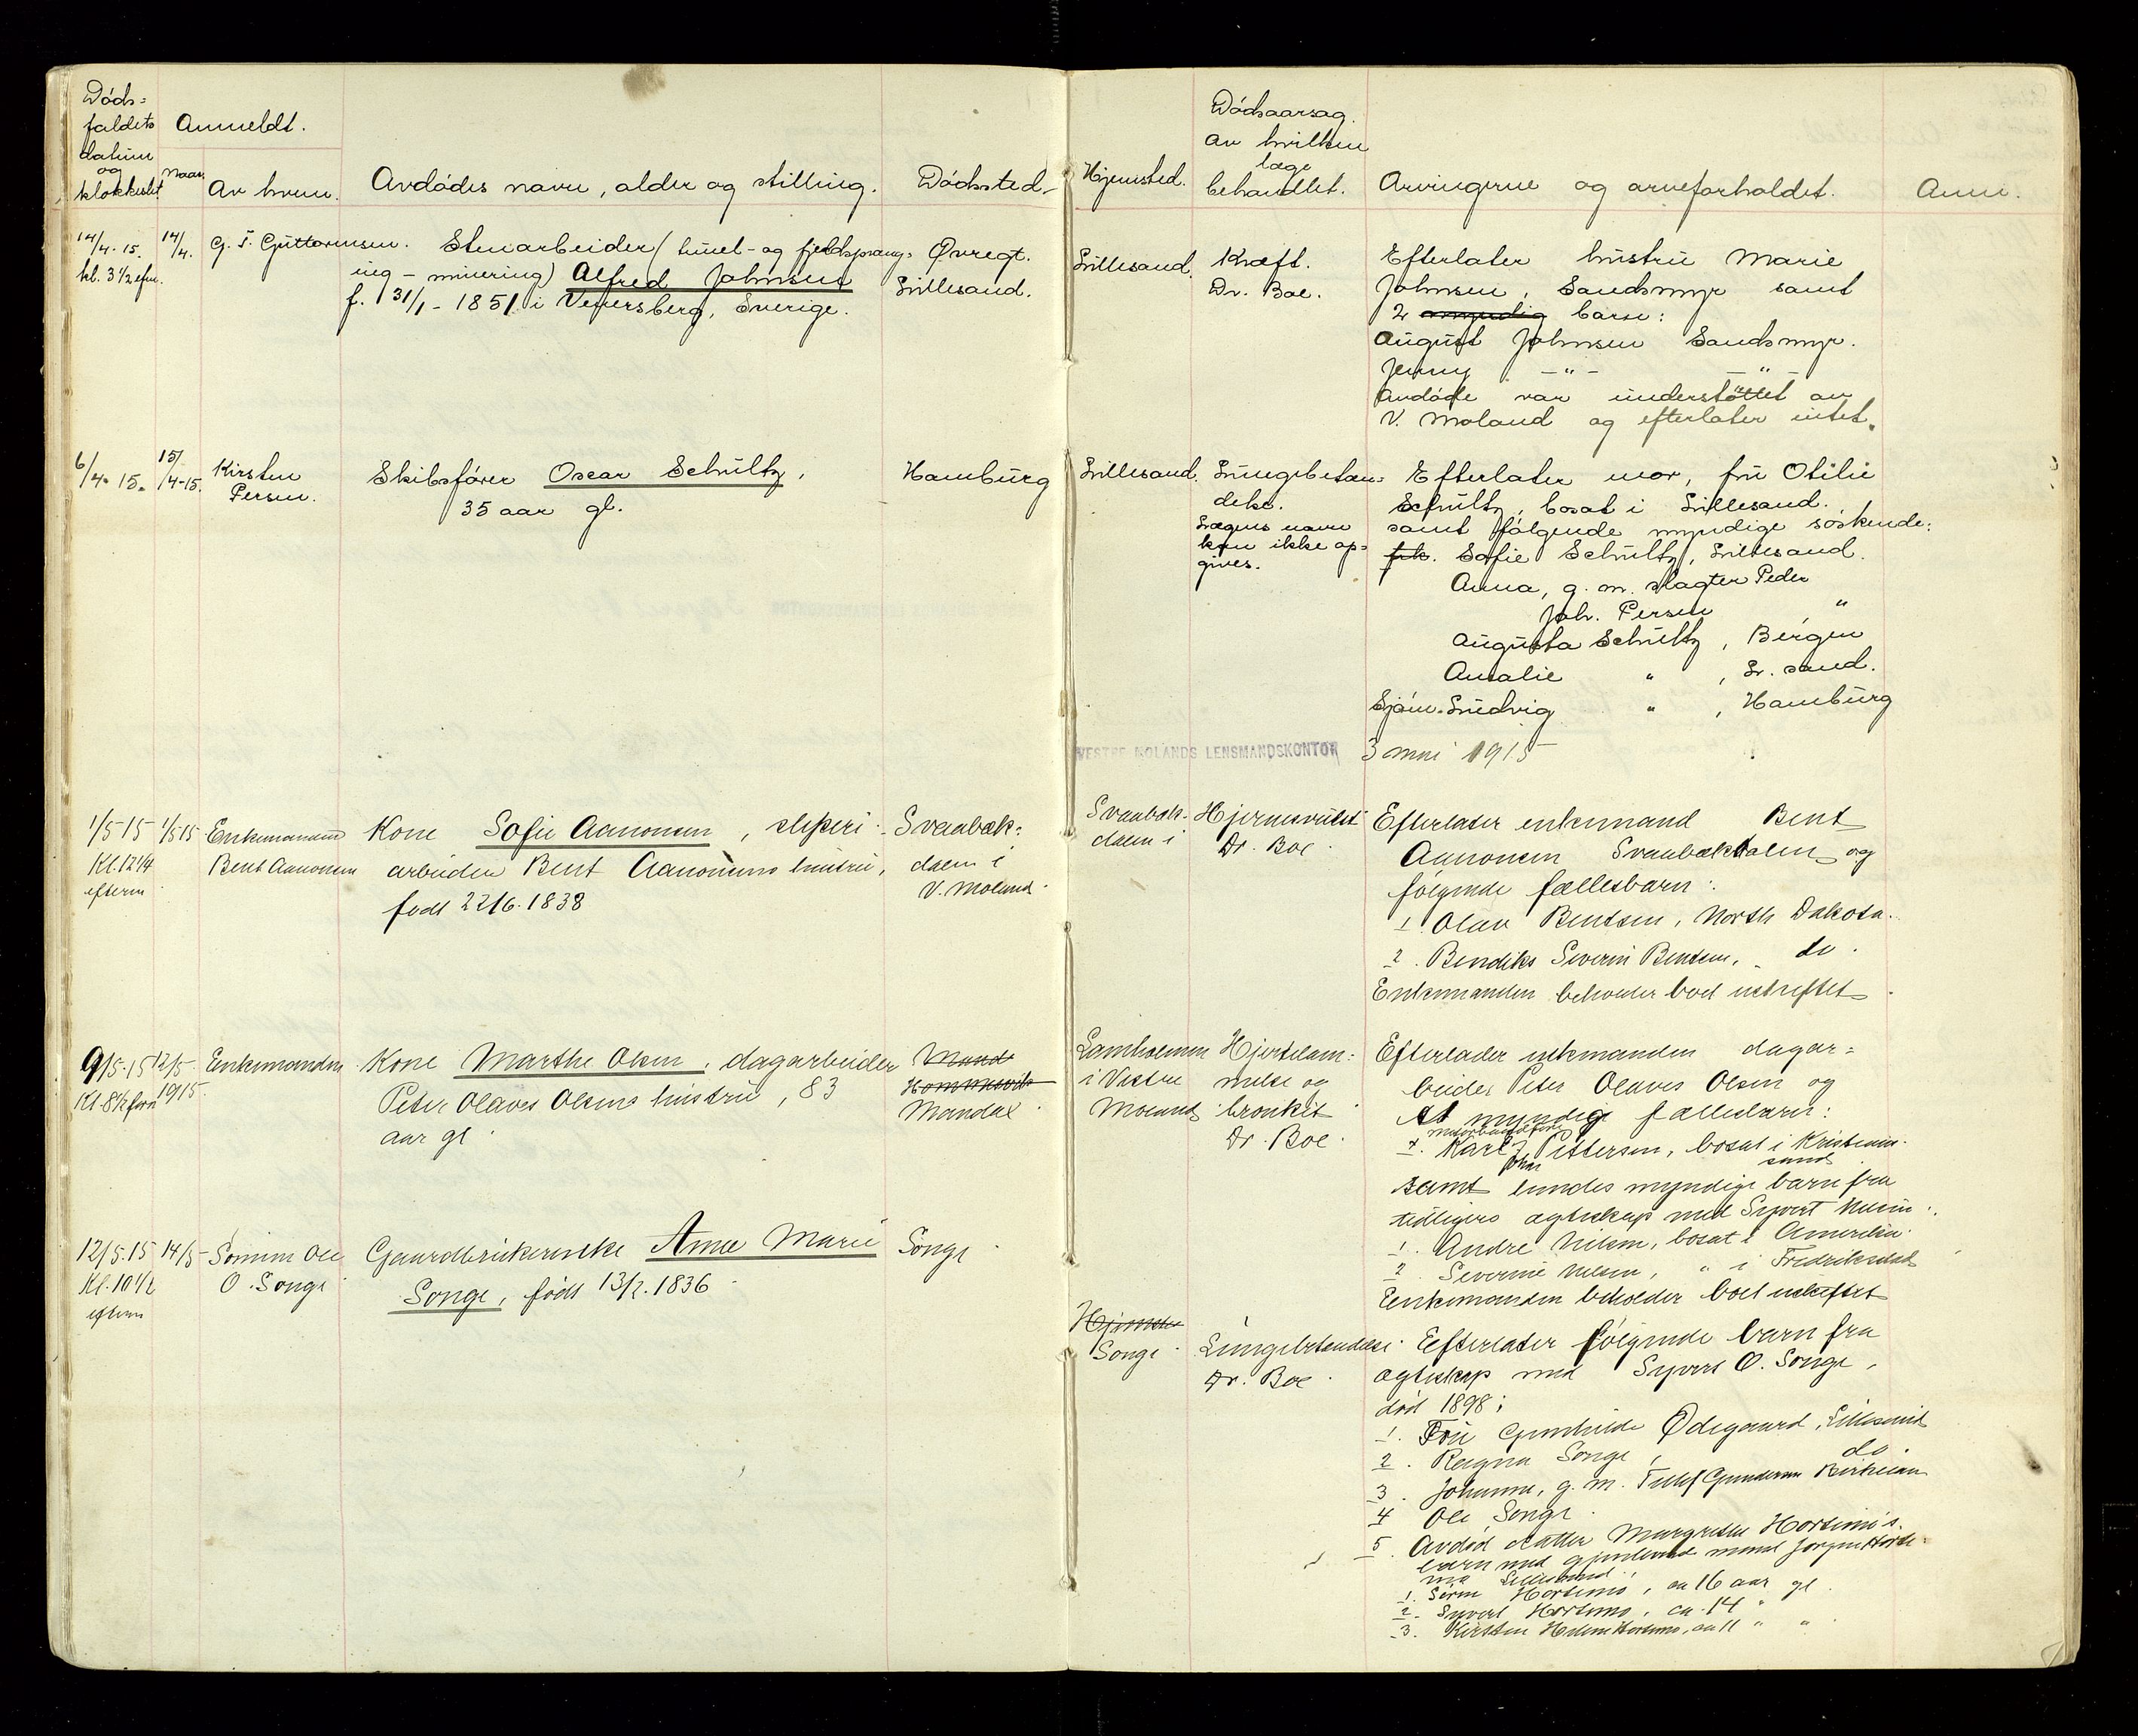 Døds-
faldets
datum
og
klokkeslet.
Anmeldt.
Naar.
Av hvem.
Avdødes navn, alder og stilling.
Dødssted.
Hjemsted.
Dødsaarsag.
av hvilken
læge
behandlet.
Arvingerne og arveforholdet.
Anm.
14/4-15.
kl. 3 1/2 efm.
14/4.
G. T. Guttormsen.
Stenarbeider (tunel- og fjeldspræng-
ing - minering) Alfred Johnsen
f. 31/1 - 1851 i Venersberg, Sverige.
Øvregt.
Lillesand.
Lillesand.
Kræft.
Dr. Boe.
Efterlater hustru Marie
Johnsen, Sandsmyr samt
2 myndig barn:
August Johnsen Sandsmyr.
Jenny -"- -"-
Avdøde var understøttet av
V. Moland og efterlater intet.
6/4-15.
15/4-15.
Kirsten
Persen.
Skibsfører Oscar Schultz,
35 aar gl.
Hamburg
Lillesand.
Lungebetæn-
delse.
Lægens navn
kan ikke op-
gives.
Efterlater mor, fru Otilie
Schultz, bosat i Lillesand.
samt følgende myndige søskende:
frk. Sofie Schultz, Lillesand.
Anna, g. m. slagter Peder
Joh. Persen "
Augusta Schultz, Bergen
Amalie " , L. sand.
Sjøm. Ludvig " , Hamburg
VESTRE MOLANDS LENSMANDSKONTOR 3 mai 1915
1/5 15
Kl. 12 1/4
efterm
1/5 15
Enkemanden
Bent Aanonsen
Kone Sofie Aanonsen, sliperi-
arbeider Bent Aanonsens hustru,
født 22/6. 1838
Svanbæk-
dalen i
V. Moland.
Svanbæk-
dalen i
Hjernesvulst
Dr. Boe.
Efterlater enkemand Bent
Aanonsen Svanbækdalen og
følgende fællesbarn:
1. Olav Bentsen, North Dakota.
2. Bendiks Severin Bentsen, do.
Enkemanden beholder boet uskiftet.
9/5-15
Kl. 8 1/2 form
12/5
1915.
Enkemanden
Kone Marthe Olsen, dagarbeider
Peter Olaves Olsens hustru, 83
aar gl.
Mandal.
Lamholmen
i Vestre
Moland
Hjertelam-
melse og
bronkit
Dr. Boe.
Efterlader enkemanden dagar-
beider Peter Olaves Olsen og
et myndig fællesbarn:
1. Karl J. Pettersen, bosat i Kristian-
sand
samt hendes myndige barn fra
tidligere ægteskap med Syvert Nilsen:
1. Andre Nilsen, bosat i Amerika.
2. Severine Nilsen, " i Fredrikstad
Enkemanden beholder boet uskiftet
12/5.15
Kl. 10 1/2
efterm
14/5
Sønnen Ole
O. Songe
Gaardbrukerenke Anne Marie
Songe, født 13/2. 1836
Songe
Hjemsted
Songe
Lungebetændelse
Dr. Boe.
Efterlater følgende barn fra
ægteskap med Syvert O. Songe,
død 1898:
1. Fru Gunhilde Ødegaard, Lillesand
2. Ragna Songe, do.
3. Johanne, g. m. Tellef Gundersen Birkeland
4 Ole Songe.
5. Avdød datter Margrethe Hortemo's
barn med gjenlevende mand Jørgen Horte-
mo Lillesand:
1. Hortemo, ca 16 aar gl.
2. Syvert Hortemo, ca. 14 "
3. Kirsten Helene Hortemo, ca 11 " "